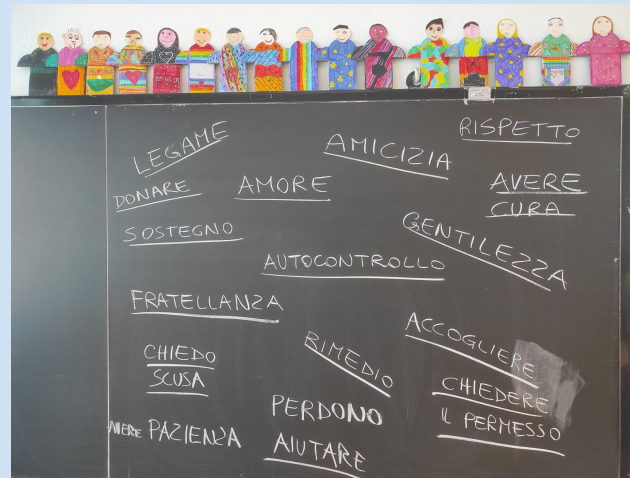 LEGAME
AMICIZIA
RISPETTO
DONARE
AMORE
AVERE
CURA
SOSTEGNO
GENTILEZZA
AUTOCONTROLLO
FRATELLANZA
ACCOGLIERE
RIMEDIO
CHIEDO
SCUSA
CHIEDERE
IL PERMESSO
PERDONO
AVERE PAZIENZA
AIUTARE